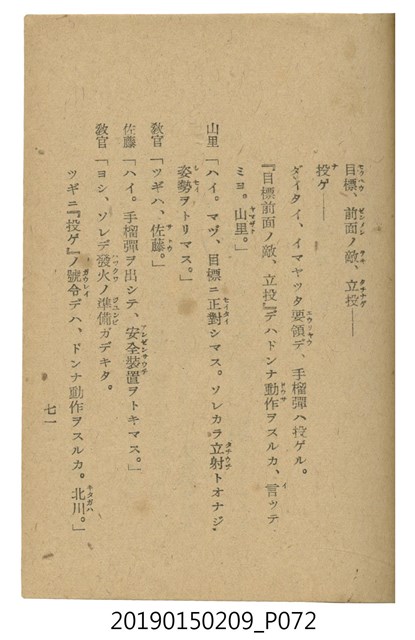 目標、前面ノ敵、立投——
投ゲ——
ダイタイ、イマヤッタ要領デ、手榴彈ハ投ゲル。
『目標前面ノ敵、立投』デハドンナ動作ヲスルカ、言ッテ
ミヨ。山里。」
山里「ハイ。マヅ、目標ニ正對シマス。ソレカラ立射トオナジ
姿勢ヲトリマス。」
敎官「ツギハ、佐藤。」
佐藤「ハイ。手榴彈ヲ出シテ、安全裝置ヲトキマス。」
敎官「ヨシ、ソレデ發火ノ準備ガデキタ。
ツギニ『投ゲ』ノ號令デハ、ドンナ動作ヲスルカ。北川。」
七一
20190150209_P072